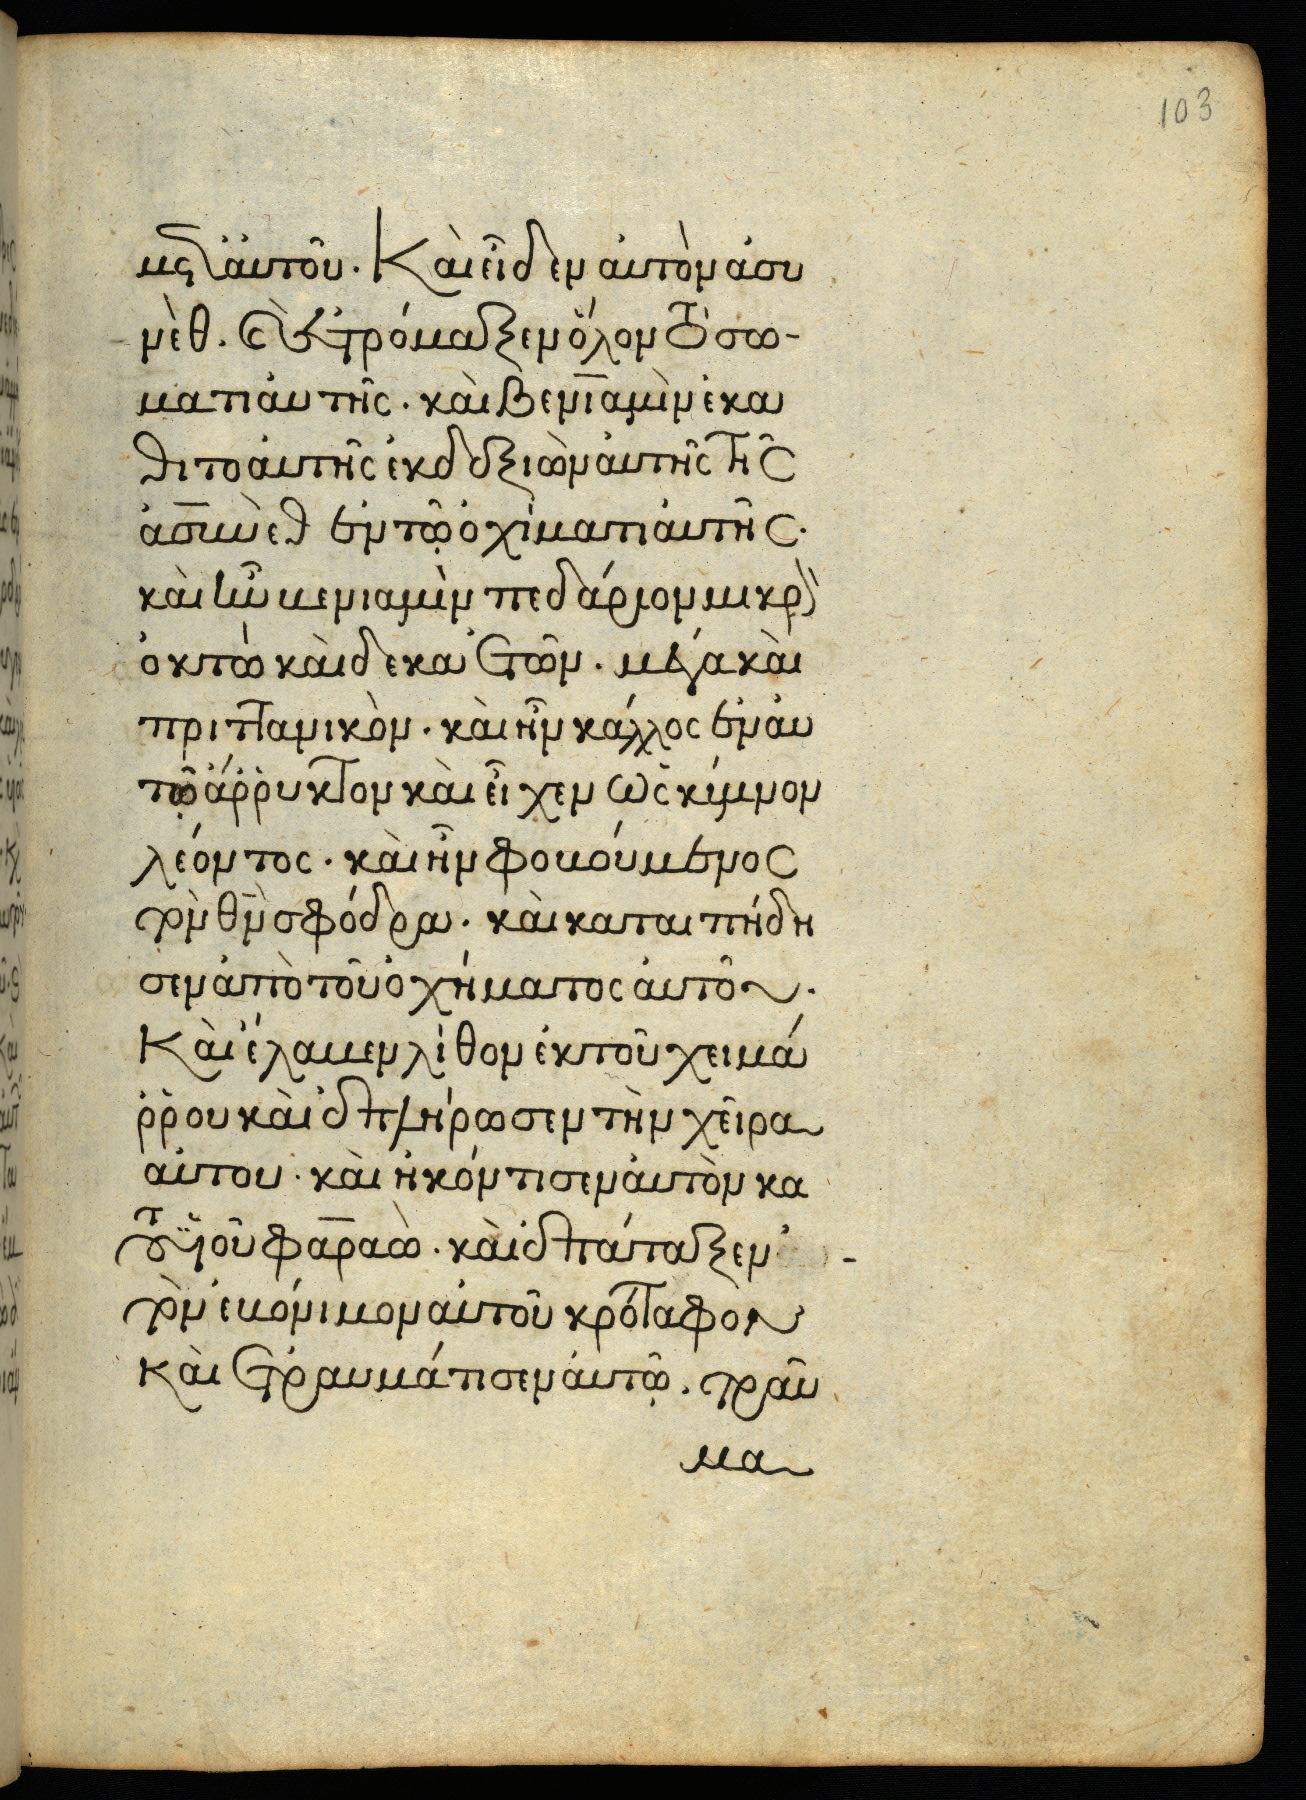 103
μετ' αὐτοῦ. Καὶ εἶδεν αὐτὸν ἀσυ
νὲθ. καὶ ἐτρόμαξεν ὅλον τὸ σω-
ματι αὐτῆς. καὶ βενιαμὶν ἐκα
θιτο αὐτῆς ἐκ δεξιῶν αὐτῆς τῆς
ἀσυνὲθ ἐν τῷ ὀχίματι αὐτῆς.
καὶ ἦν βενιαμὶν πεδάριον μικρὸν
ὀκτώ καὶ δεκα ἐτῶν. μέγα καὶ
πριταμικὸν. καὶ ἦν κάλλος ἐν αὐ
τῷ ἄῤῥυκτον καὶ εἶχεν ὡς κίμνον
λέοντος. καὶ ἦν φοβούμενος
τὸν θν σφόδρα. καὶ καταιπήδη
σεν ἀπὸ τοῦ ὀχήματος αὐτοῦ.
Καὶ ἔλαβεν λίθον ἐκ τοῦ χειμά
ῤῥου καὶ ἐπλήρωσεν τὴν χεῖρα
αὐτου. καὶ ἠκόντισεν αὐτὸν κα
τὰ τοῦ ϋἱοῦ φαραὼ. καὶ ἐπάταξεν
τὸν ἐβόνιμον αὐτοῦ κρόταφον
καὶ ἐτραυμάτισεν αὐτῷ. τραῦ
μα